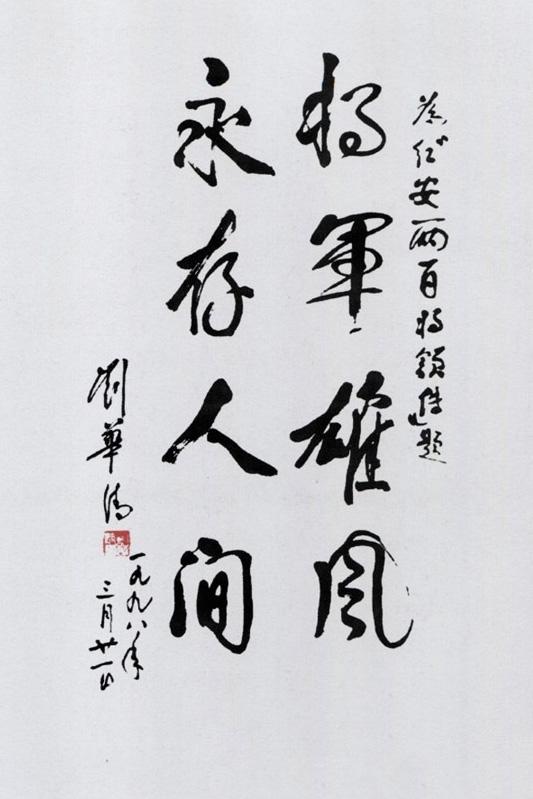 为红安两百将领传题
将軍雄风
永存人间
劉華清
一九九八年
三月廿一日